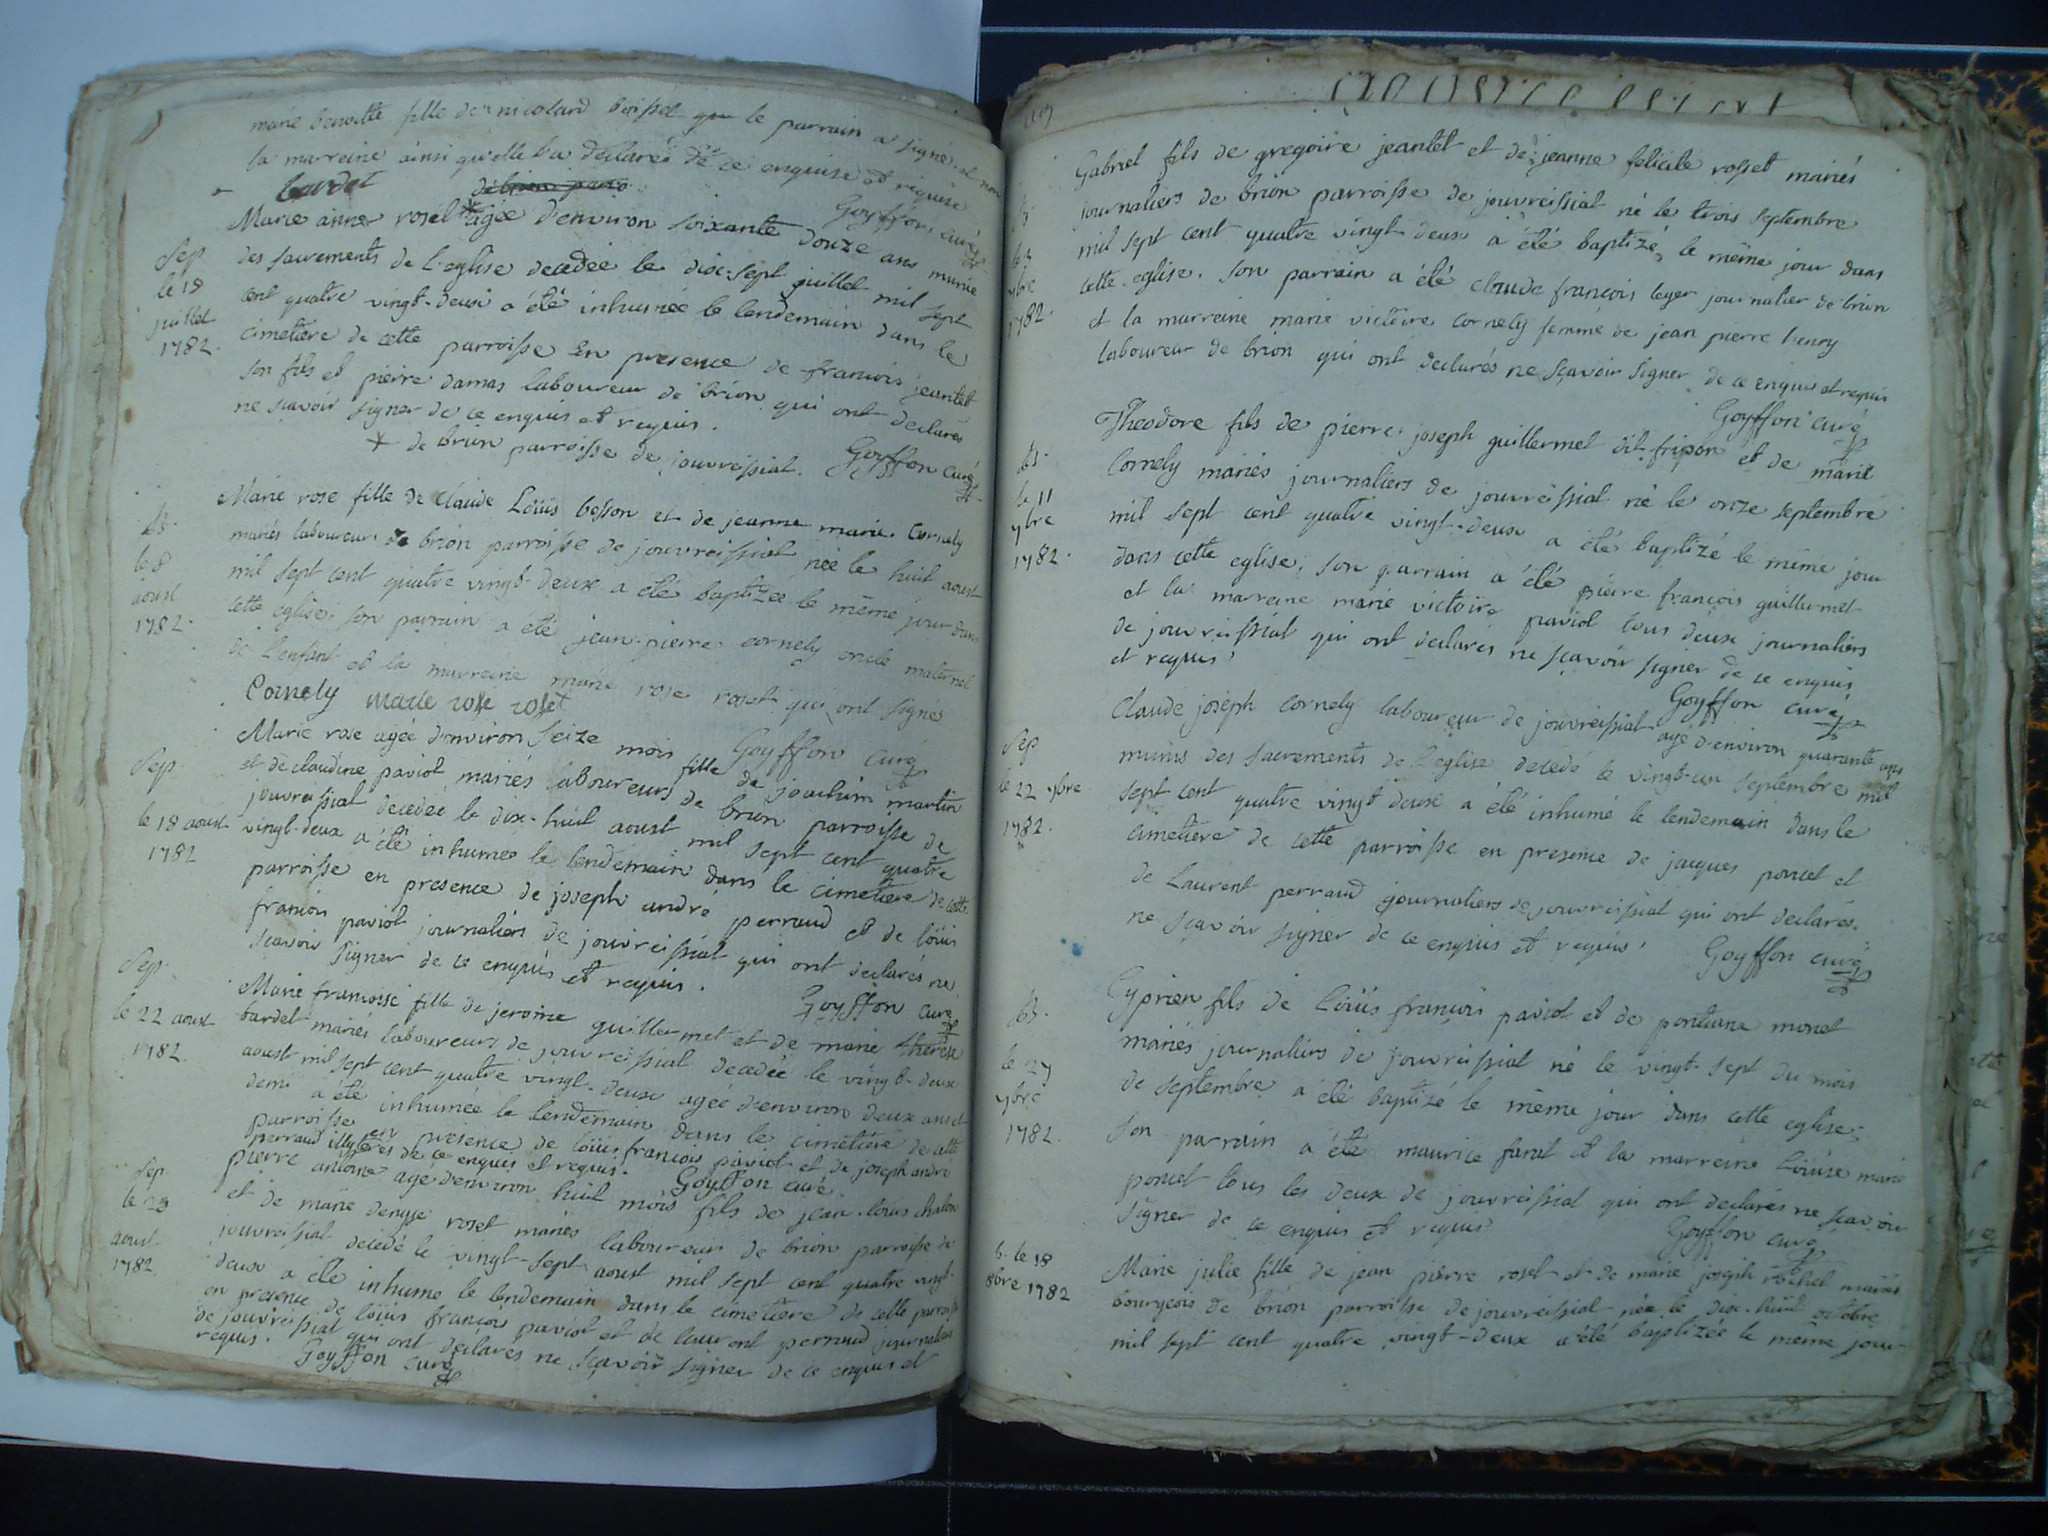 marie benoitte fille de nicolard boisset que le parrain a signé et non
la marreine ainsi qu'elle l'a declaré de ce enquise et requise
bardet
Goyffon curé
Marie anne roset * agée d'environ soixante douze ans munie
des sacrements de l'eglise decedée le dix-sept juillet mil sept
cent quatre vingt-deux a été inhumée le lendemain dans le
cimetiere de cette parroisse en presence de francois jeantet
son fils et pierre damas laboureur de brion qui ont declarés
ne scavoir signer de ce enquis et requis.
* de brion parroisse de jouvreissiat. Goyffon curé
Sep
le 18
juillet
1782.
Marie rose fille de Claude Loüis besson et de jeanne marie Cornely
mariés laboureurs de brion parroisse de jouvreissiat née le huit aoust
mil sept cent quatre vingt-deux a été baptizée le même jour dans
cette eglise; son parrain a été jean-pierre cornely oncle maternel
de l'enfant et la marreine marie rose roset qui ont signés
Cornely marie rose roset
Goyffon curé
le 8
aoust
1782.
Marie rose agée d'environ seize mois fille de joachim martin
et de claudine paviot mariés laboureurs de brion parroisse de
jouvreissiat decedée le dix-huit aoust mil sept cent quatre
vingt-deux a été inhumée le lendemain dans le cimetiere de cette
parroisse en presence de joseph andré perraud et de loüis
francois paviot journaliers de jouvreissiat qui ont declarés ne
scavoir signer de ce enquis et requis.
Goyffon curé
Sep.
le 18 aoust
1782
Marie francoise fille de jerome guillermet et de marie therese
bardet mariés laboureurs de jouvreissiat decedée le vingt-deux
aoust mil sept cent quatre vingt-deux agée d'environ deux ans et
demi a été inhumée le lendemain dans le cimetiere de cette
parroisse en presence de loüis francois paviot et de joseph andre
perraud illyteres de ce enquis et requis. Goyffon curé
Sep.
le 22 aoust
1782
pierre antoine agé d'environ huit mois fils de jean-louis chalon
et de marie denyse roset mariés laboureurs de brion parroisse de
jouvreissiat decedé le vingt-sept aoust mil sept cent quatre vingt-
deux a été inhumé le lendemain dans le cimetiere de cette parroisse
en presence de loüis francois paviot et de laurent perraud journaliers
de jouvreissiat qui ont declarés ne scavoir signer de ce enquis et
requis. Goyffon curé
Sep
le 28
aoust
1782
Gabriel fils de gregoire jeantet et de jeanne felicité rosset mariés
journaliers de brion parroisse de jouvreissiat né le trois septembre
mil sept cent quatre vingt-deux a été baptizé le même jour dans
cette eglise. Son parrain a été claude françois leger journalier de brion
et la marreine marie victoire cornely femme de jean pierre henry
laboureur de brion qui ont declarés ne sçavoir signer de ce enquis et requis
Goyffon curé
le 3
7bre
1782.
Theodore fils de pierre joseph guillermet dit fripon et de marie
Cornely mariés journaliers de jouvreissiat né le onze septembre
mil sept cent quatre vingt-deux a été baptizé le même jour
dans cette eglise; son parrain a été pierre françois guillermet
et la mareine marie victoire paviot tous deux journaliers
de jouvreissiat qui ont declarés ne sçavoir signer de ce enquis
et requis
Goyffon curé
le 11
7bre
1782.
Claude joseph Cornely laboureur de jouvreissiat agé d'environ quarante ans
munis des sacrements de l'eglise decedé le vingt-un septembre mil
sept cent quatre vingt deux a été inhumé le lendemain dans le
cimetiere de cette parroisse en presence de jacques poncet et
de Laurent perraud journaliers de jouvreissiat qui ont declarés
ne sçavoir signer de ce enquis et requis. Goyffon curé
Sep
le 22 7bre
1782.
Cyprien fils de Loüis françois paviot et de pontiane monet
mariés journaliers de jouvreissiat né le vingt-sept du mois
de septembre a été baptizé le même jour dans cette eglise;
Son parrain a été maurice farat et la marreine Loüise marie
poncet tous les deux de jouvreissiat qui ont declarés ne scavoir
signer de ce enquis et requis
Goyffon curé
le 27
7bre
1782.
Marie julie fille de jean pierre roset et de marie joseph mariés
bourgeois de brion parroisse de jouvreissiat née le dix-huit octobre
mil sept cent quatre vingt-deux a été baptizée le meme jour
b. le 18
8bre 1782